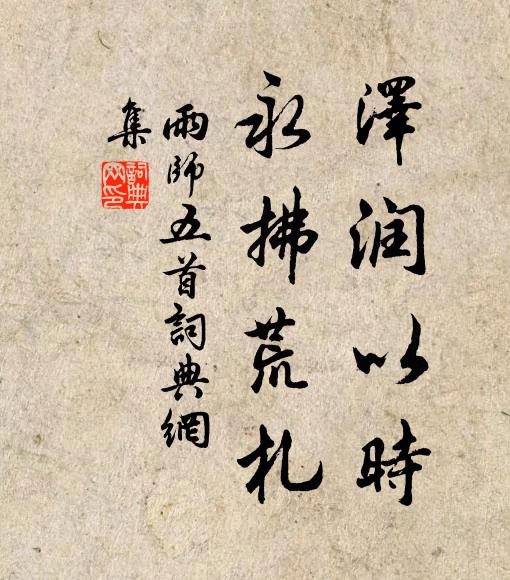 澤润以時
永拂荒札
雨師五首詞典網
集
詞典網印